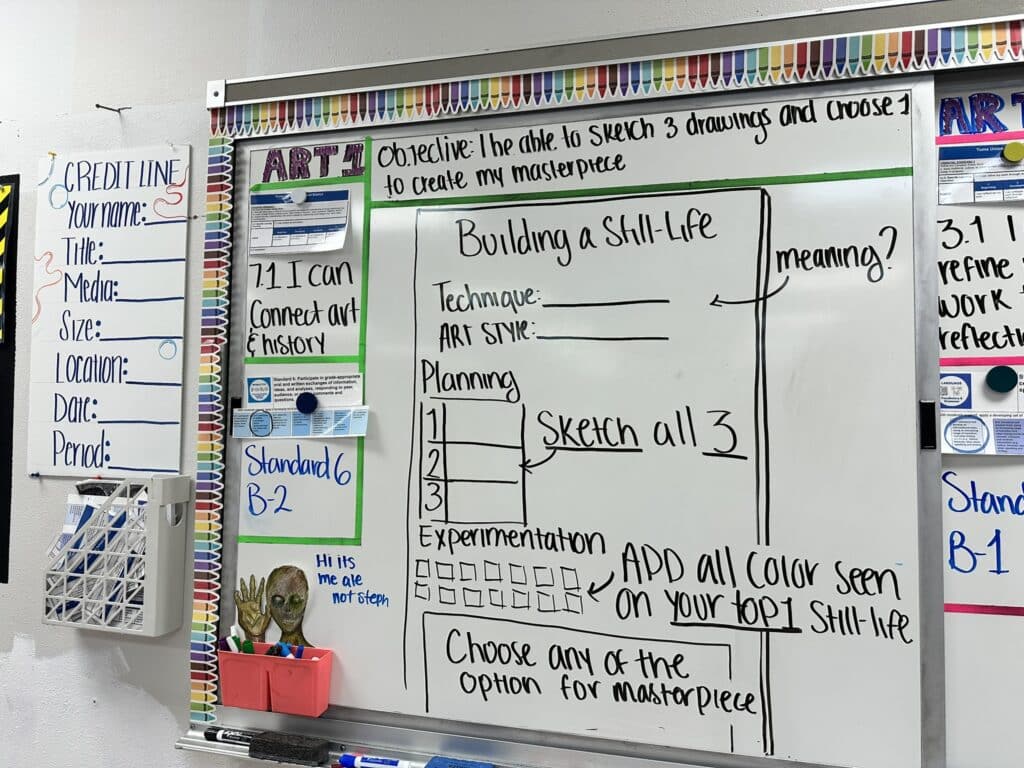 CREDIT LINE
Your name:
Title:
Media:
Size:
Location:
Date:
Period:
ART 1
Objective: I be able to sketch 3 drawings and choose 1
to create my masterpiece
7.1 I can
Connect art
& history
Standard 6. Participate in grade-appropriate
oral and written exchanges of information,
ideas, and analyses, responding to peer,
audience, or comments and
questions.
Standard 6
B-2
Hi its
me ale
not steph
Building a Still-Life
meaning?
Technique:
ART STYLE:
Planning
1
2
3
Sketch all 3
Experimentation
ADD all color seen
on your top 1 Still-life
Choose any of the
option for masterpiece
ART
3.1 I
refine
work
reflecti
LANGUAGE
Stand
B-1
EXPO